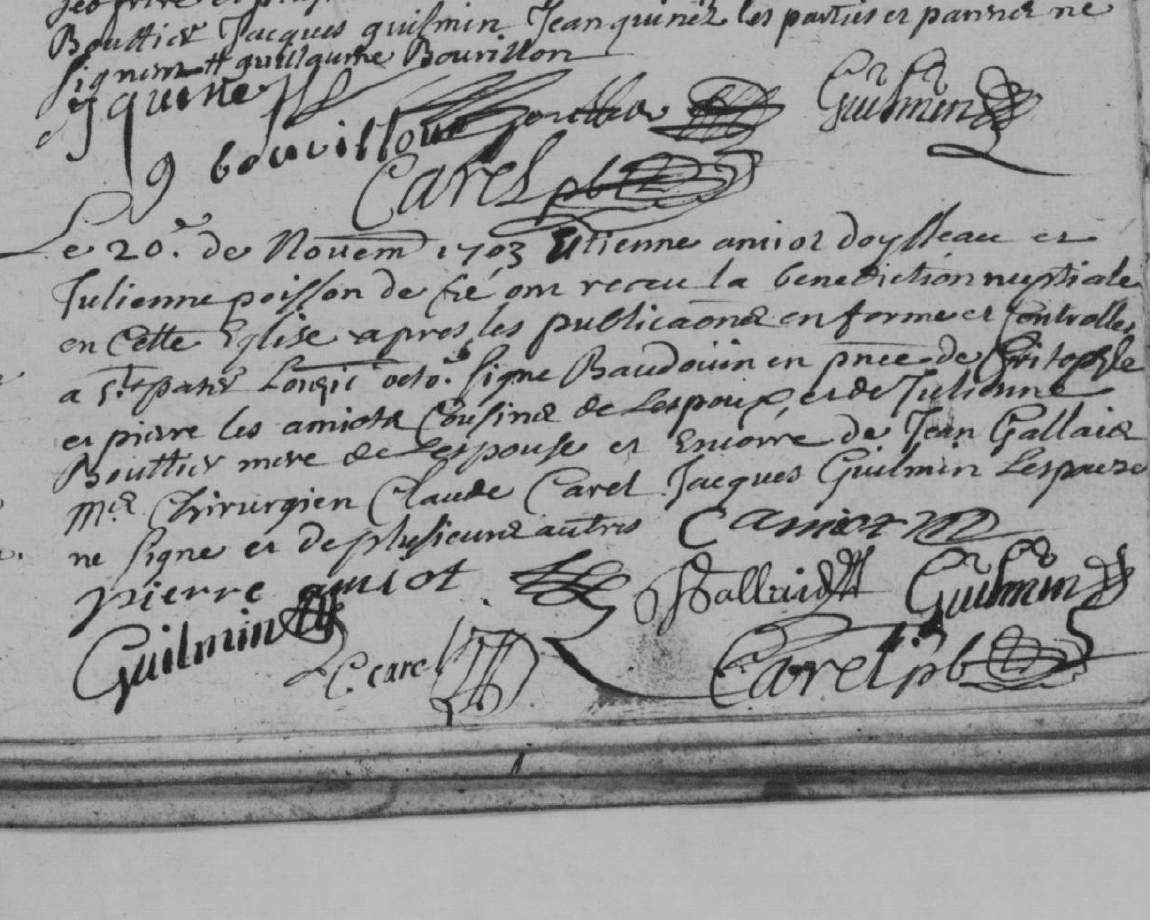 Bouttier Jacques guilmin Jean quinez les parties et parrez ne
signent guillaume Bourillon
J quinne
g bouvillon Bouttier Guilmin
Carel pb
Le 20e. de Novem 1703 Etienne amiot doysseau et
Julienne poisson de fié ont receu la benediction nuptiale
en Cette Eglise apres les publicaones en forme et Controllez
a St pater octo. signe Baudouin en pnce de Critophle
et pierre les amiots Cousins de Lespoux, et de Julienne
Bouttier mere de Lespouse et Encorre de Jean Gallais
Mre Chirurgien Claude Carel Jacques Guilmin Lespouze
ne signe et de plusieurs autres C amiot
pierre amiot Gallais Guilmin
Guilmin C. carel Carel pb